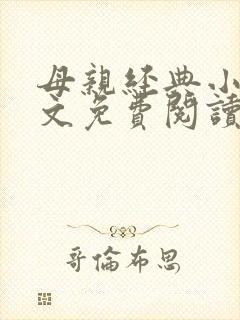 母親經典小
文免費閱讀
哥倫布思